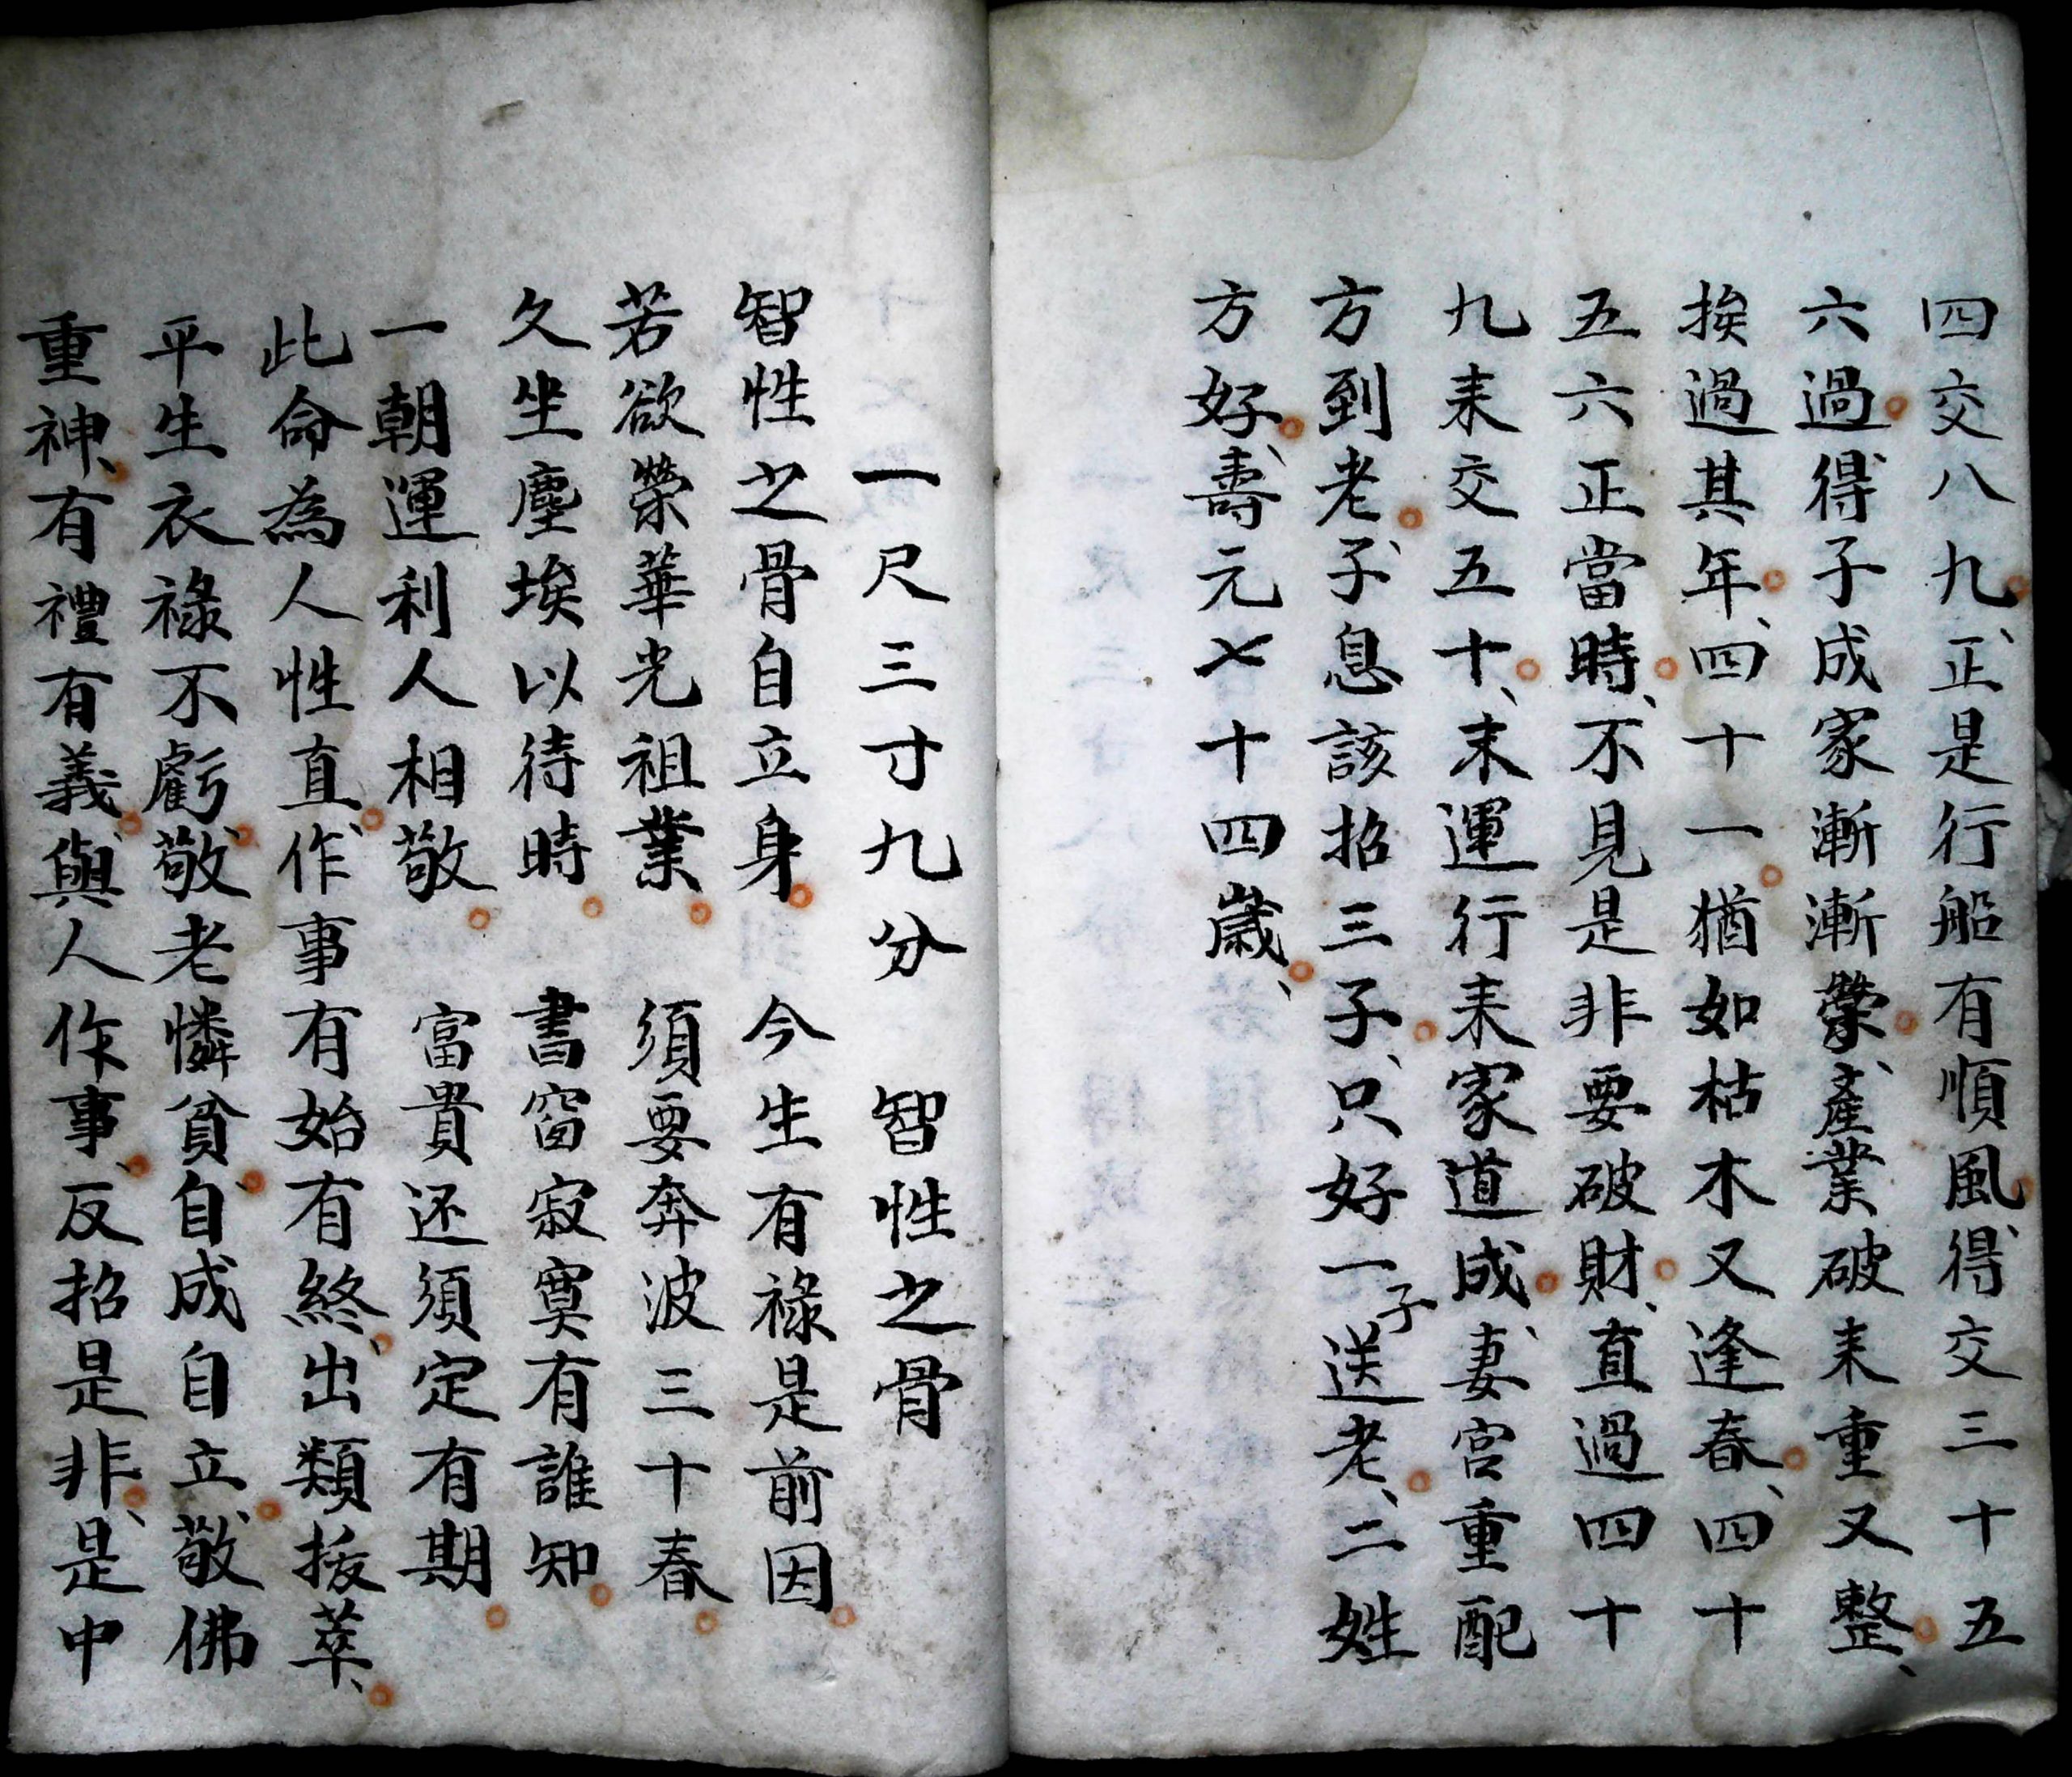 四交八九、正是行船有順風、得交三十五
六過、得子成家漸漸榮、產業破耒重又整、
挨過其年、四十一猶如枯木又逢春、四十
五六正當時、不見是非要破財、直過四十
九耒交五十、末運行耒家道成、妻宮重配
方到老、子息該招三子、只好一子送老、二姓
方好、壽元七十四歲、
一尺三寸九分 智性之骨
智性之骨自立身 今生有祿是前因
若欲榮華光祖業 須要奔波三十春
久坐塵埃以待時 書窗寂寞有誰知
一朝運利人相敬 富貴还須定有期
此命為人性直、作事有始有終、出類拔萃、
平生衣祿不虧、敬老憐貧、自成自立、敬佛
重神、有禮有義、與人作事、反招是非、是中